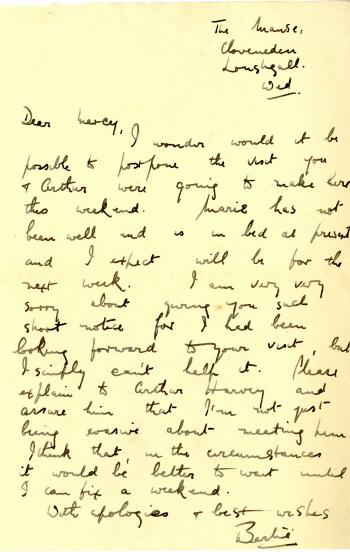 The Manse,
Cloveneden
Loughgall.
Wed.
Dear Mercy,
I wonder would it be
possible to postpone the visit you
& Arthur were going to make here
this weekend. Marie has not
been well and is in bed at present
and I expect will be for the
next week. I am very very
sorry about giving you such
short notice for I had been
looking forward to your visit, but
I simply can't help it. Please
explain to Arthur Harvey and
assure him that I'm not just
being evasive about meeting him
I think that, in the circumstances
it would be better to wait until
I can fix a weekend.
With apologies & best wishes
Bertie